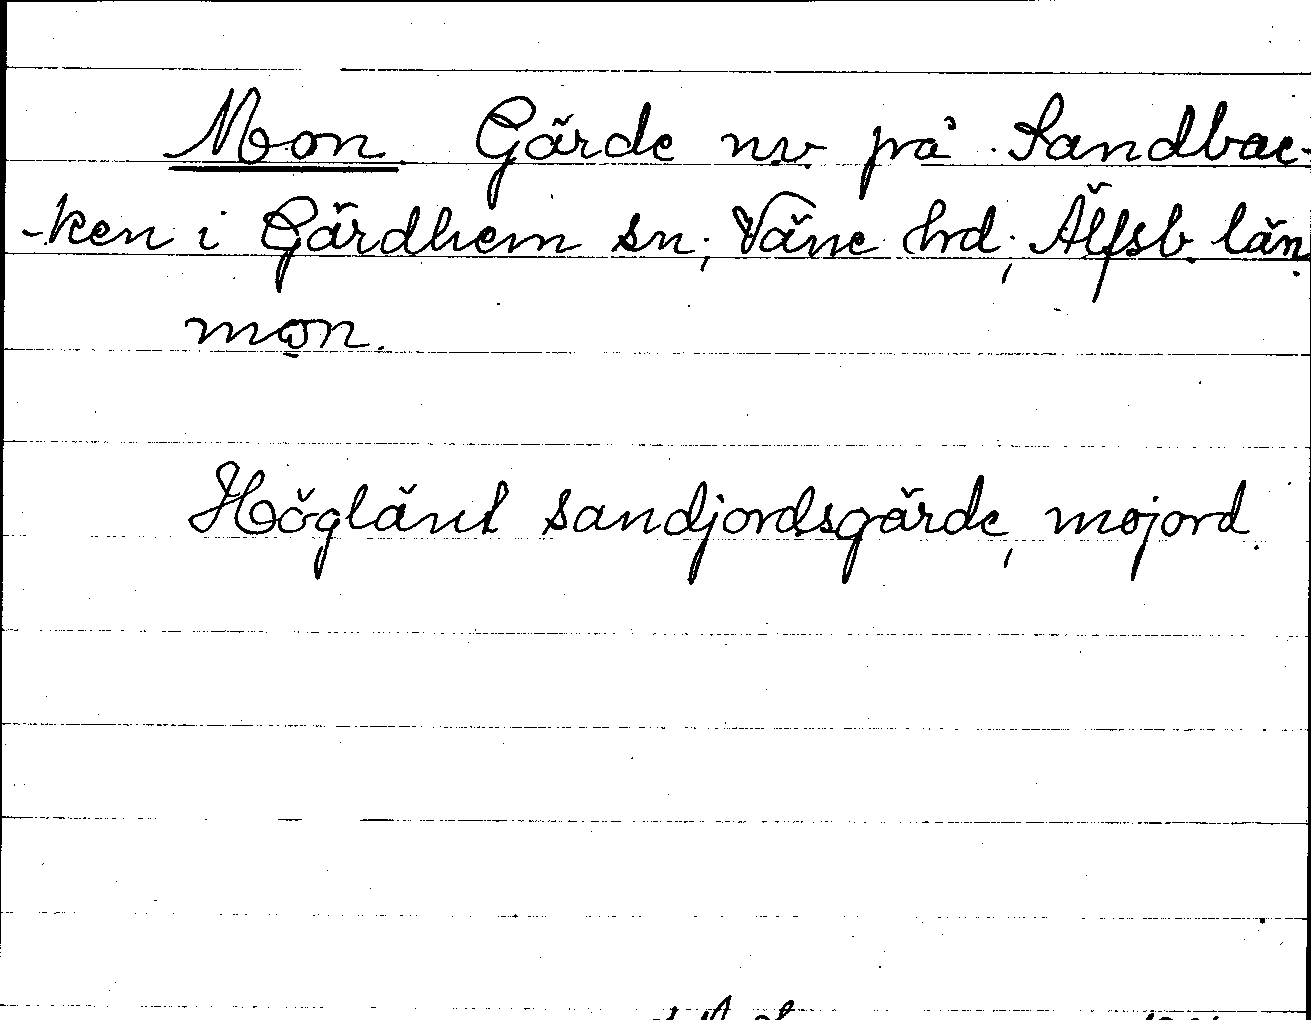 Mon. Gärde nv. på Sandbac-
-ken i Gärdhem sn; Väne hrd; Älfsb. län.
mo̱n.
Höglänt sandjordsgärde, mojord.